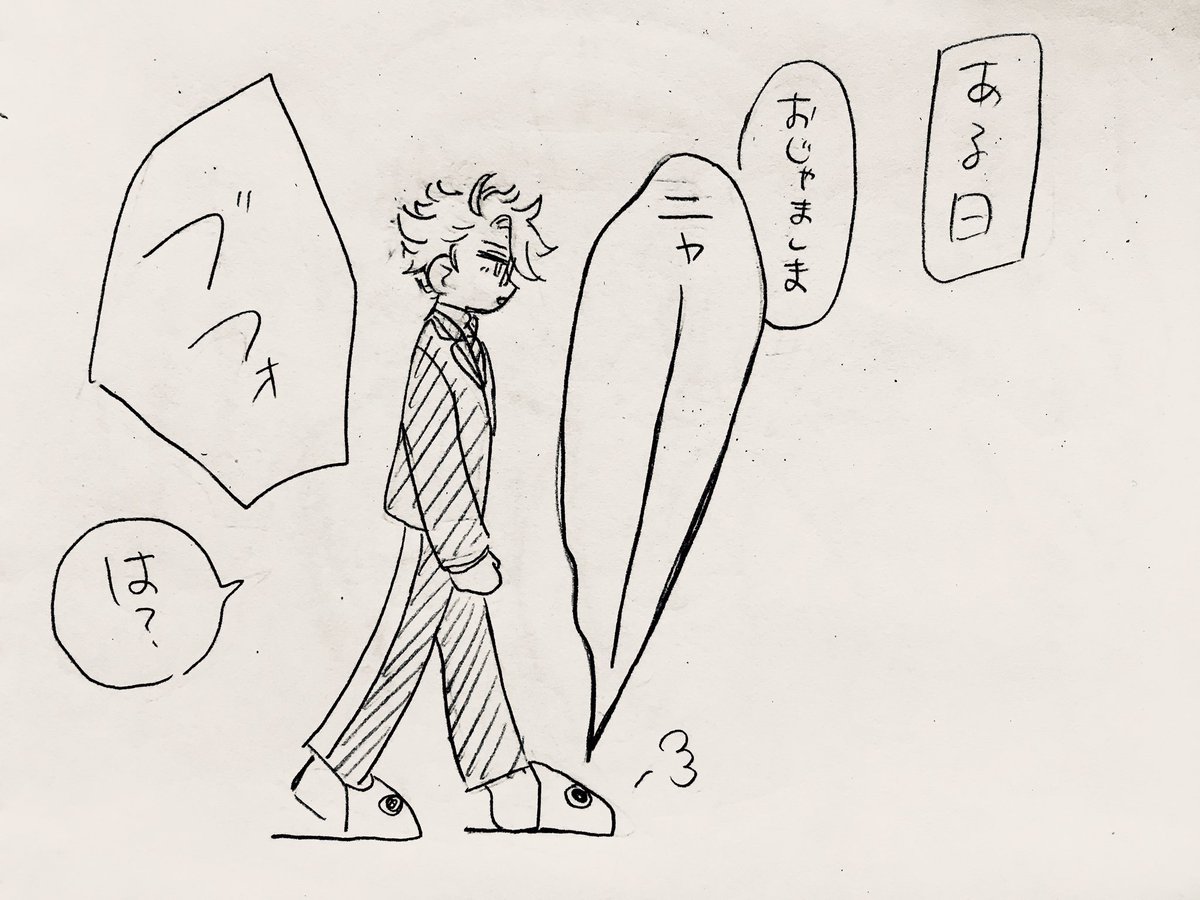 ある日
おじゃましま
ニャー
ブフォ
は?